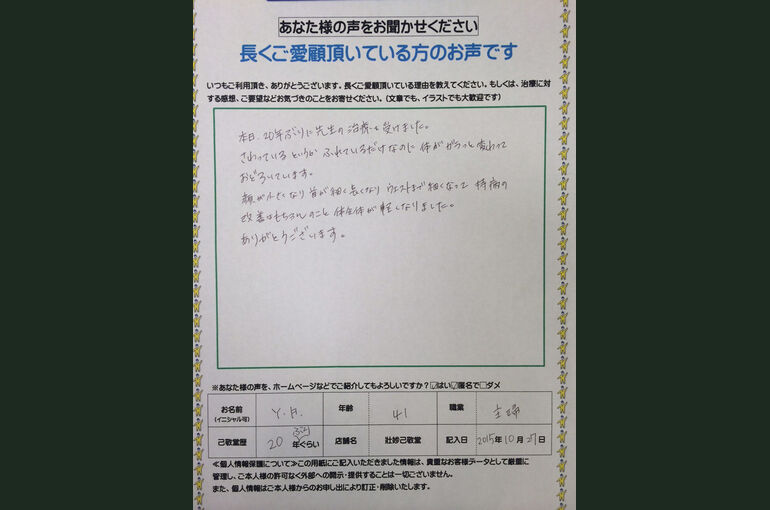 あなた様の声をお聞かせください
長くご愛顧頂いている方のお声です
いつもご利用頂き、ありがとうございます。長くご愛顧頂いている理由を教えてください。もしくは、治療に対
する感想、ご要望などお気づきのことをお寄せください。(文章でも、イラストでも大歓迎です)
本日、20年ぶりに先生の治療を受けました。
さわっているというか ふれているだけなのに 体がガラっと変わって
おどろいています。
顔が小さくなり 首が細く長くなり ウエストまで細くなって 持病の
改善はもちろんのこと 体全体が軽くなりました。
ありがとうございます。
※あなた様の声を、ホームページなどでご紹介してもよろしいですか?☑はい☑匿名で□ダメ
お名前 (イニシャル可) Y.H. 年齢 41 職業 主婦
己敬堂歴 20 年ぐらい ぶり 店舗名 壮妙己敬堂 記入日 2015年10月27日
≪個人情報保護について≫この用紙にご記入いただきました情報は、貴重なお客様データとして厳重に
管理し、ご本人様の許可なく外部への開示・提供することは一切ございません。
また、個人情報はご本人様からのお申し出により訂正・削除いたします。